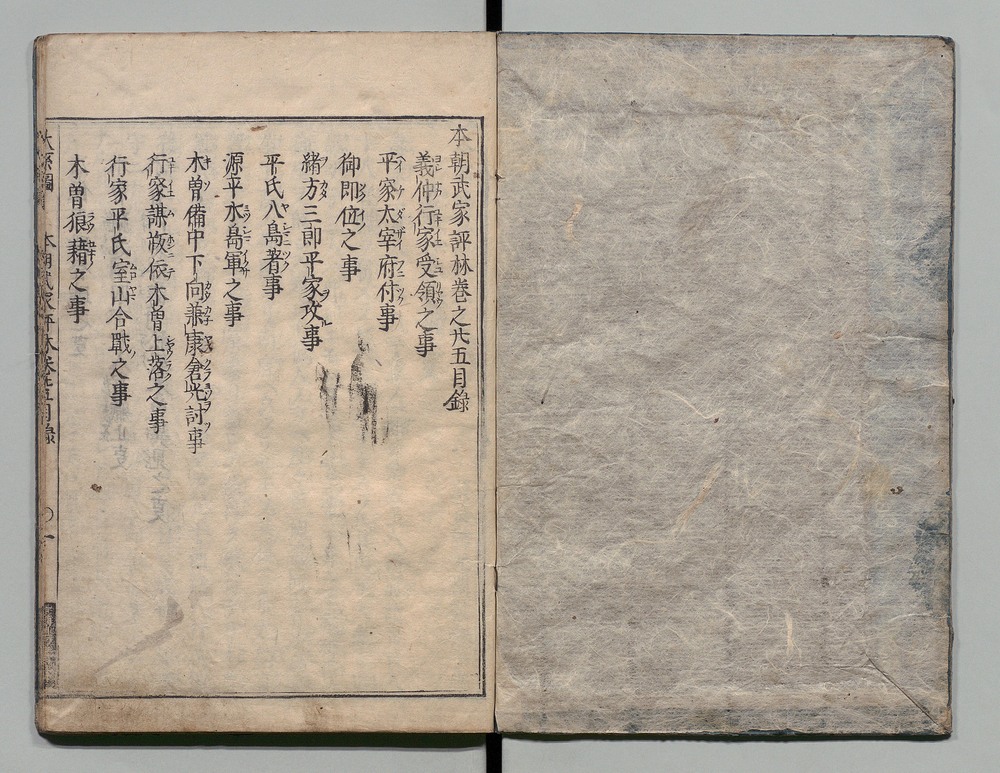 本朝武家評林巻之廿五目録
義仲行家受領之事
平家太宰府付事
御即位之事
緒方三郎平家攻事
平氏八島著事
源平水島軍之事
木曽備中下向兼康倉光討事
行家謀叛依木曽上落之事
行家平氏室山合戰之事
木曽狼藉之事